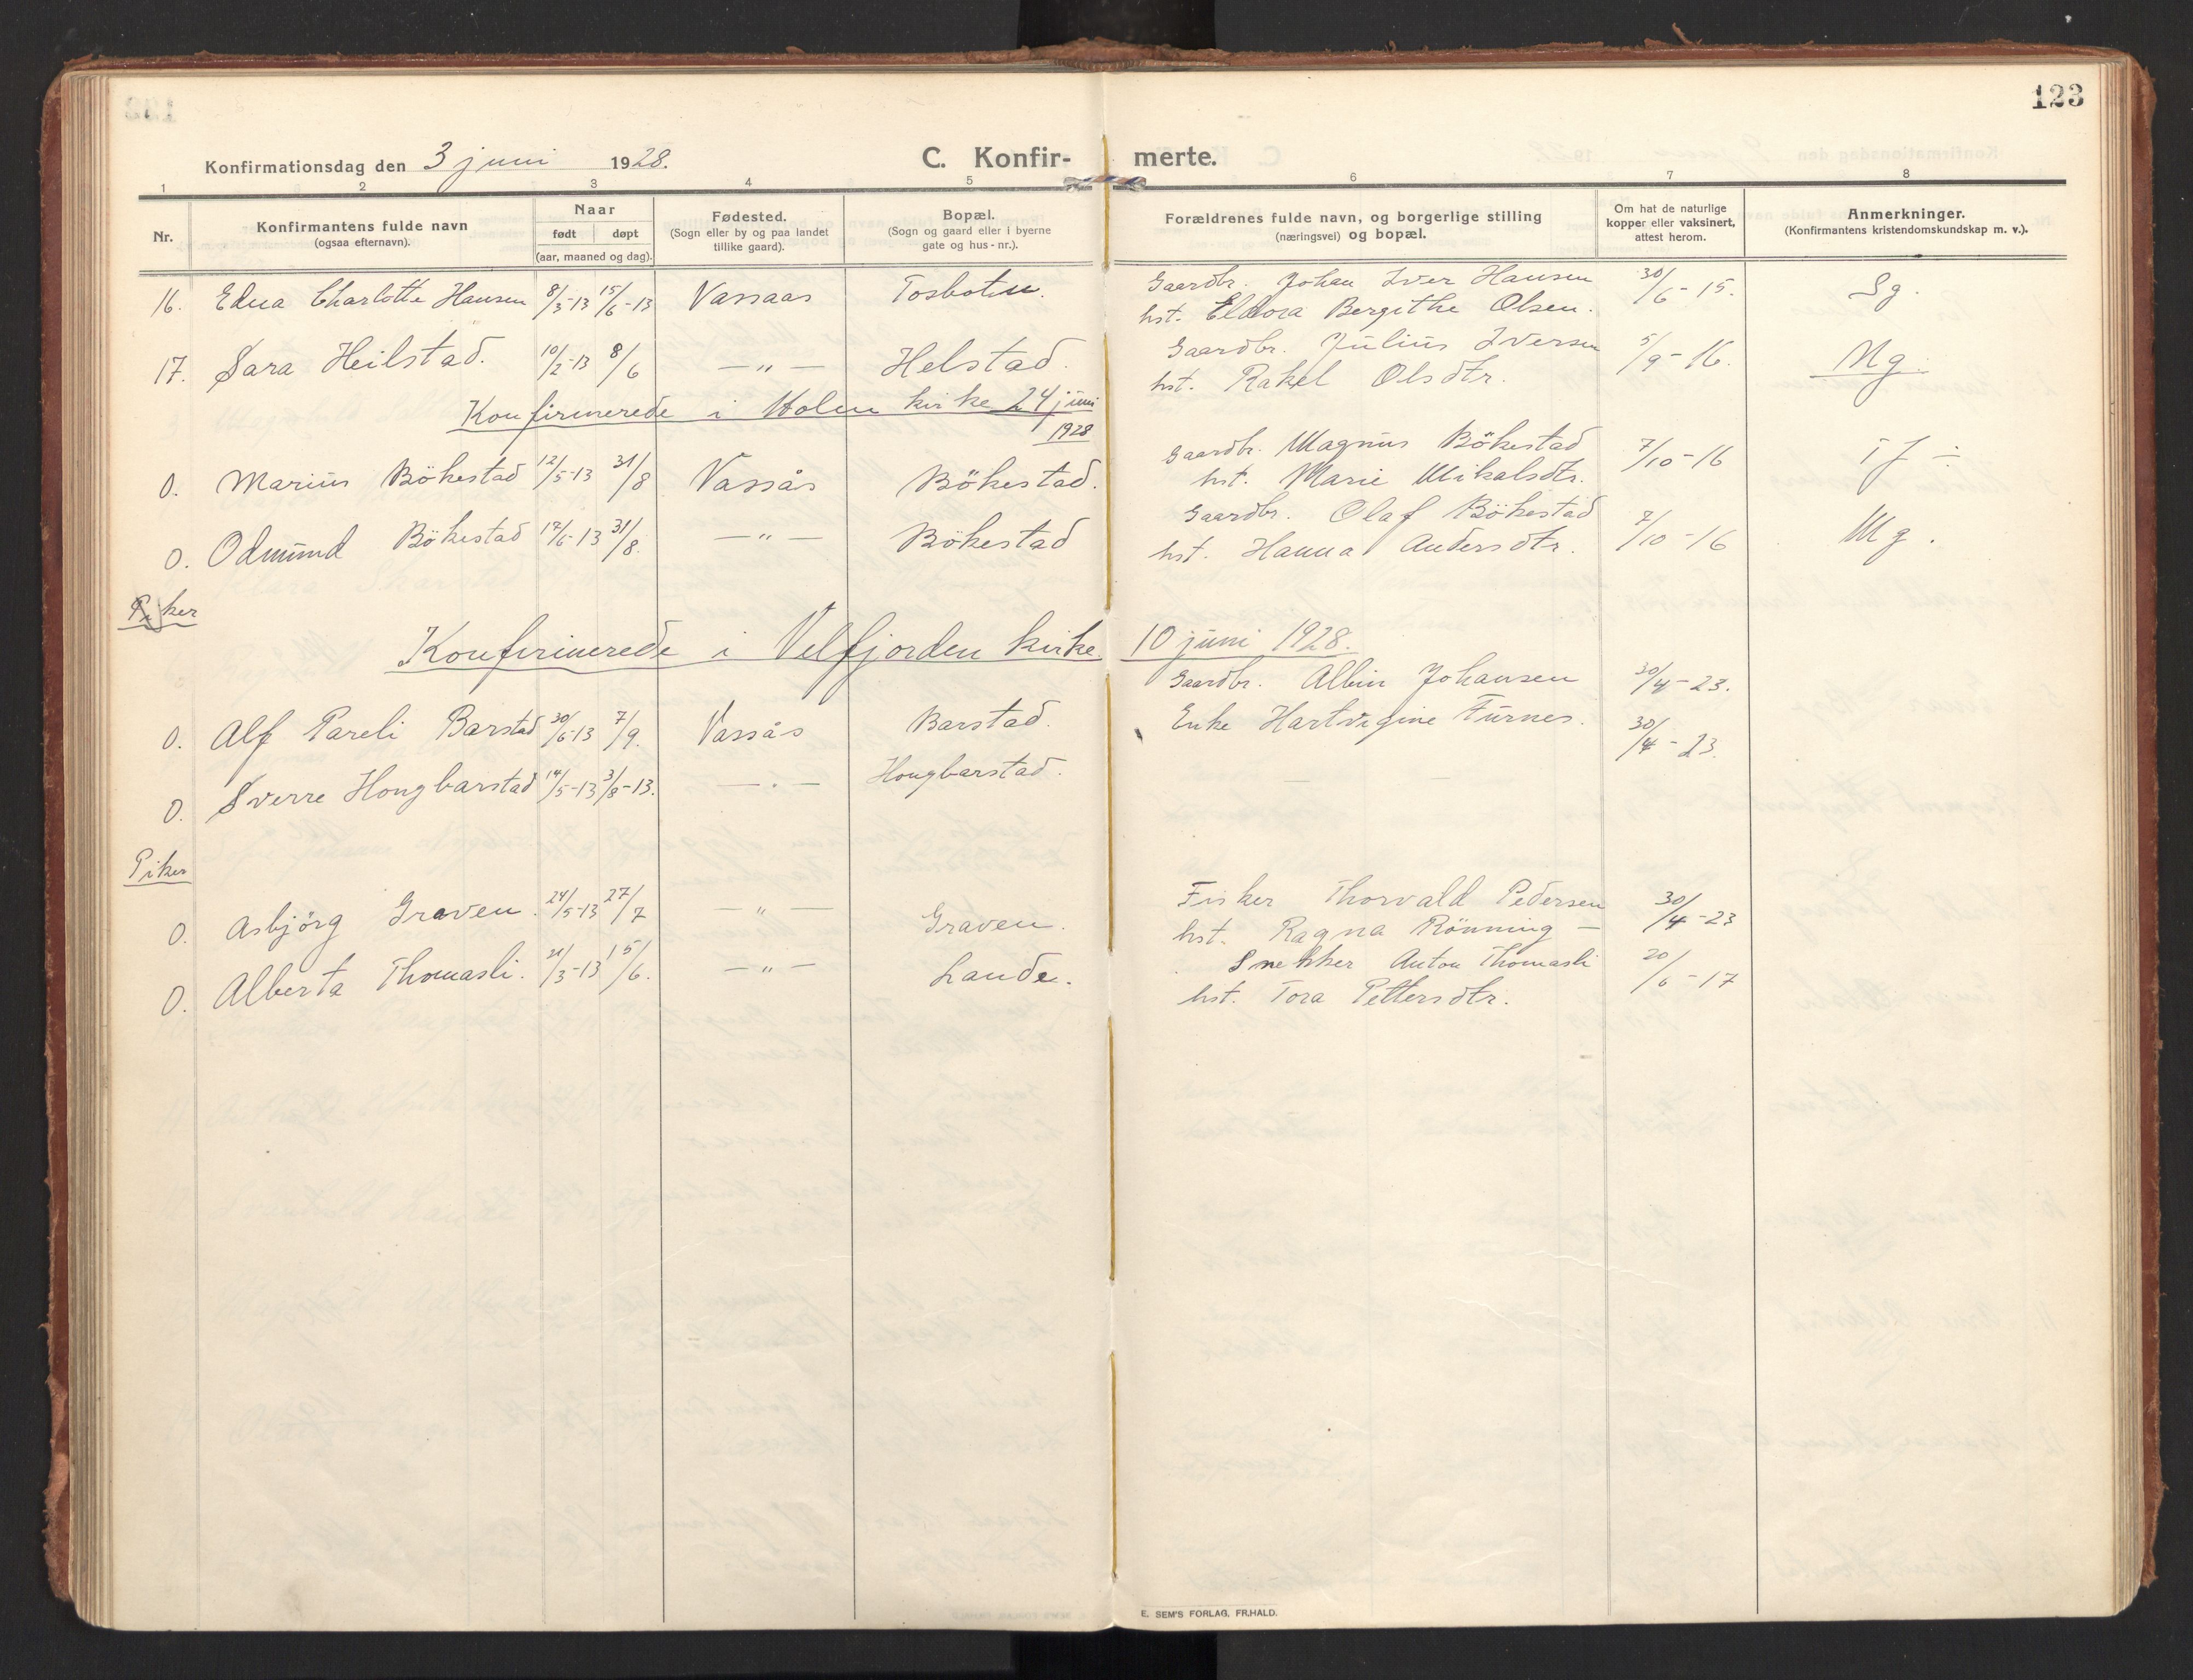 123
Konfirmationsdag den 3 juni 1928.
C. Konfir- merte.
1 2 3 4 5 6 7 8
Nr.
Konfirmantens fulde navn
(ogsaa efternavn).
Naar
født døpt
(aar, maaned og dag).
Fødested.
(Sogn eller by og paa landet
tillike gaard).
Bopæl.
(Sogn og gaard eller i byerne
gate og hus-nr.).
Forældrenes fulde navn, og borgerlige stilling
(næringsvei) og bopæl.
Om hat de naturlige
kopper eller vaksinert,
attest herom.
Anmerkninger.
(Konfirmantens kristendomskundskap m. v.).
16. Edna Charlotte Hansen 8/3-13 15/6-13 Vassaas Tosbotn. Gaardbr. Johan Iver Hansen 30/6-15. Sg.
hst. Eldora Bergithe Olsen.
17. Sara Heilstad. 10/2-13 8/6 —"— Helstad. Gaardbr. Julius Iversen 5/9-16. Mg.
hst. Rakel Olsdtr.
Konfirmerede i Holm kirke 24 juni
1928
O. Marius Bökestad 12/5-13 31/8 Vassås Bökestad. Gaardbr. Magnus Bökestad 7/10-16 Tf ÷
hst. Marie Mikalsdtr.
O. Odmund Bökestad 17/6-13 31/8. —"— Bökestad Gaardbr. Olaf Bökestad 7/10-16 Mg.
hst. Hanna Andersdtr.
Piker
Konfirmerede i Velfjorden kirke. 10 juni 1928.
O. Alf Pareli Barstad 30/6-13 7/9. Vassås Barstad. Gaardbr. Albin Johansen 30/4-23.
O. Sverre Hongbarstad 14/5-13 3/8-13. —"— Hongbarstad. Enke Hartvigine Furnes. 30/4-23.
Piker
O. Asbjörg Graven. 24/5-13 27/7 —"— Graven. Fisker Thorvald Pedersen 30/4-23
hst. Ragna Rönning —
O. Alberta Thomasli. 21/3-13 15/6. —"— Lande. Snekker Anton Thomasli 20/6-17
hst. Tora Pettersdtr.
E. SEM'S FORLAG, FR.HALD.